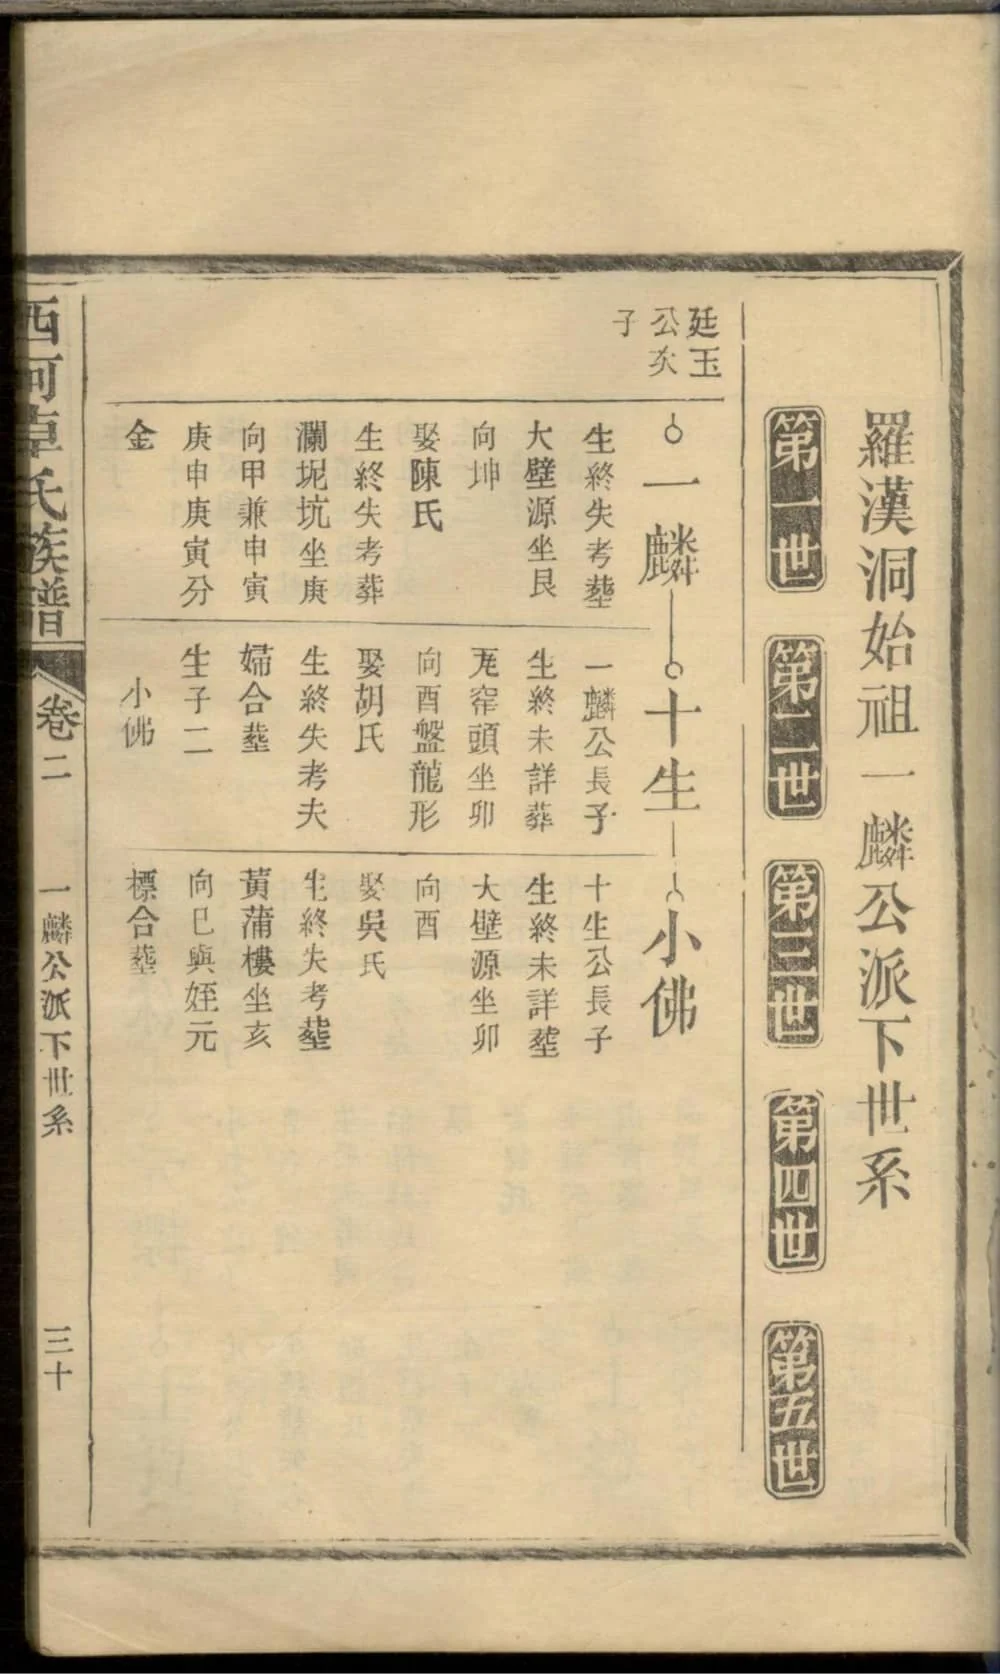 羅漢洞始祖一麟公派下世系
第一世
第二世
第三世
第四世
第五世
廷玉
公次
子
一麟
生終失考塟
大壁源坐艮
向坤
娶陳氏
生終失考葬
瀾坭坑坐庚
向甲兼申寅
庚申庚寅分
金
十生
一麟公長子
生終未詳葬
瓦窰頭坐卯
向酉盤龍形
娶胡氏
生終失考夫
婦合塟
生子二
小佛
小佛
十生公長子
生終未詳塟
大壁源坐卯
向酉
娶吳氏
生終失考塟
黃蒲樓坐亥
向巳與姪元
標合塟
西河卓氏族譜
卷二
一麟公派下世系
三十